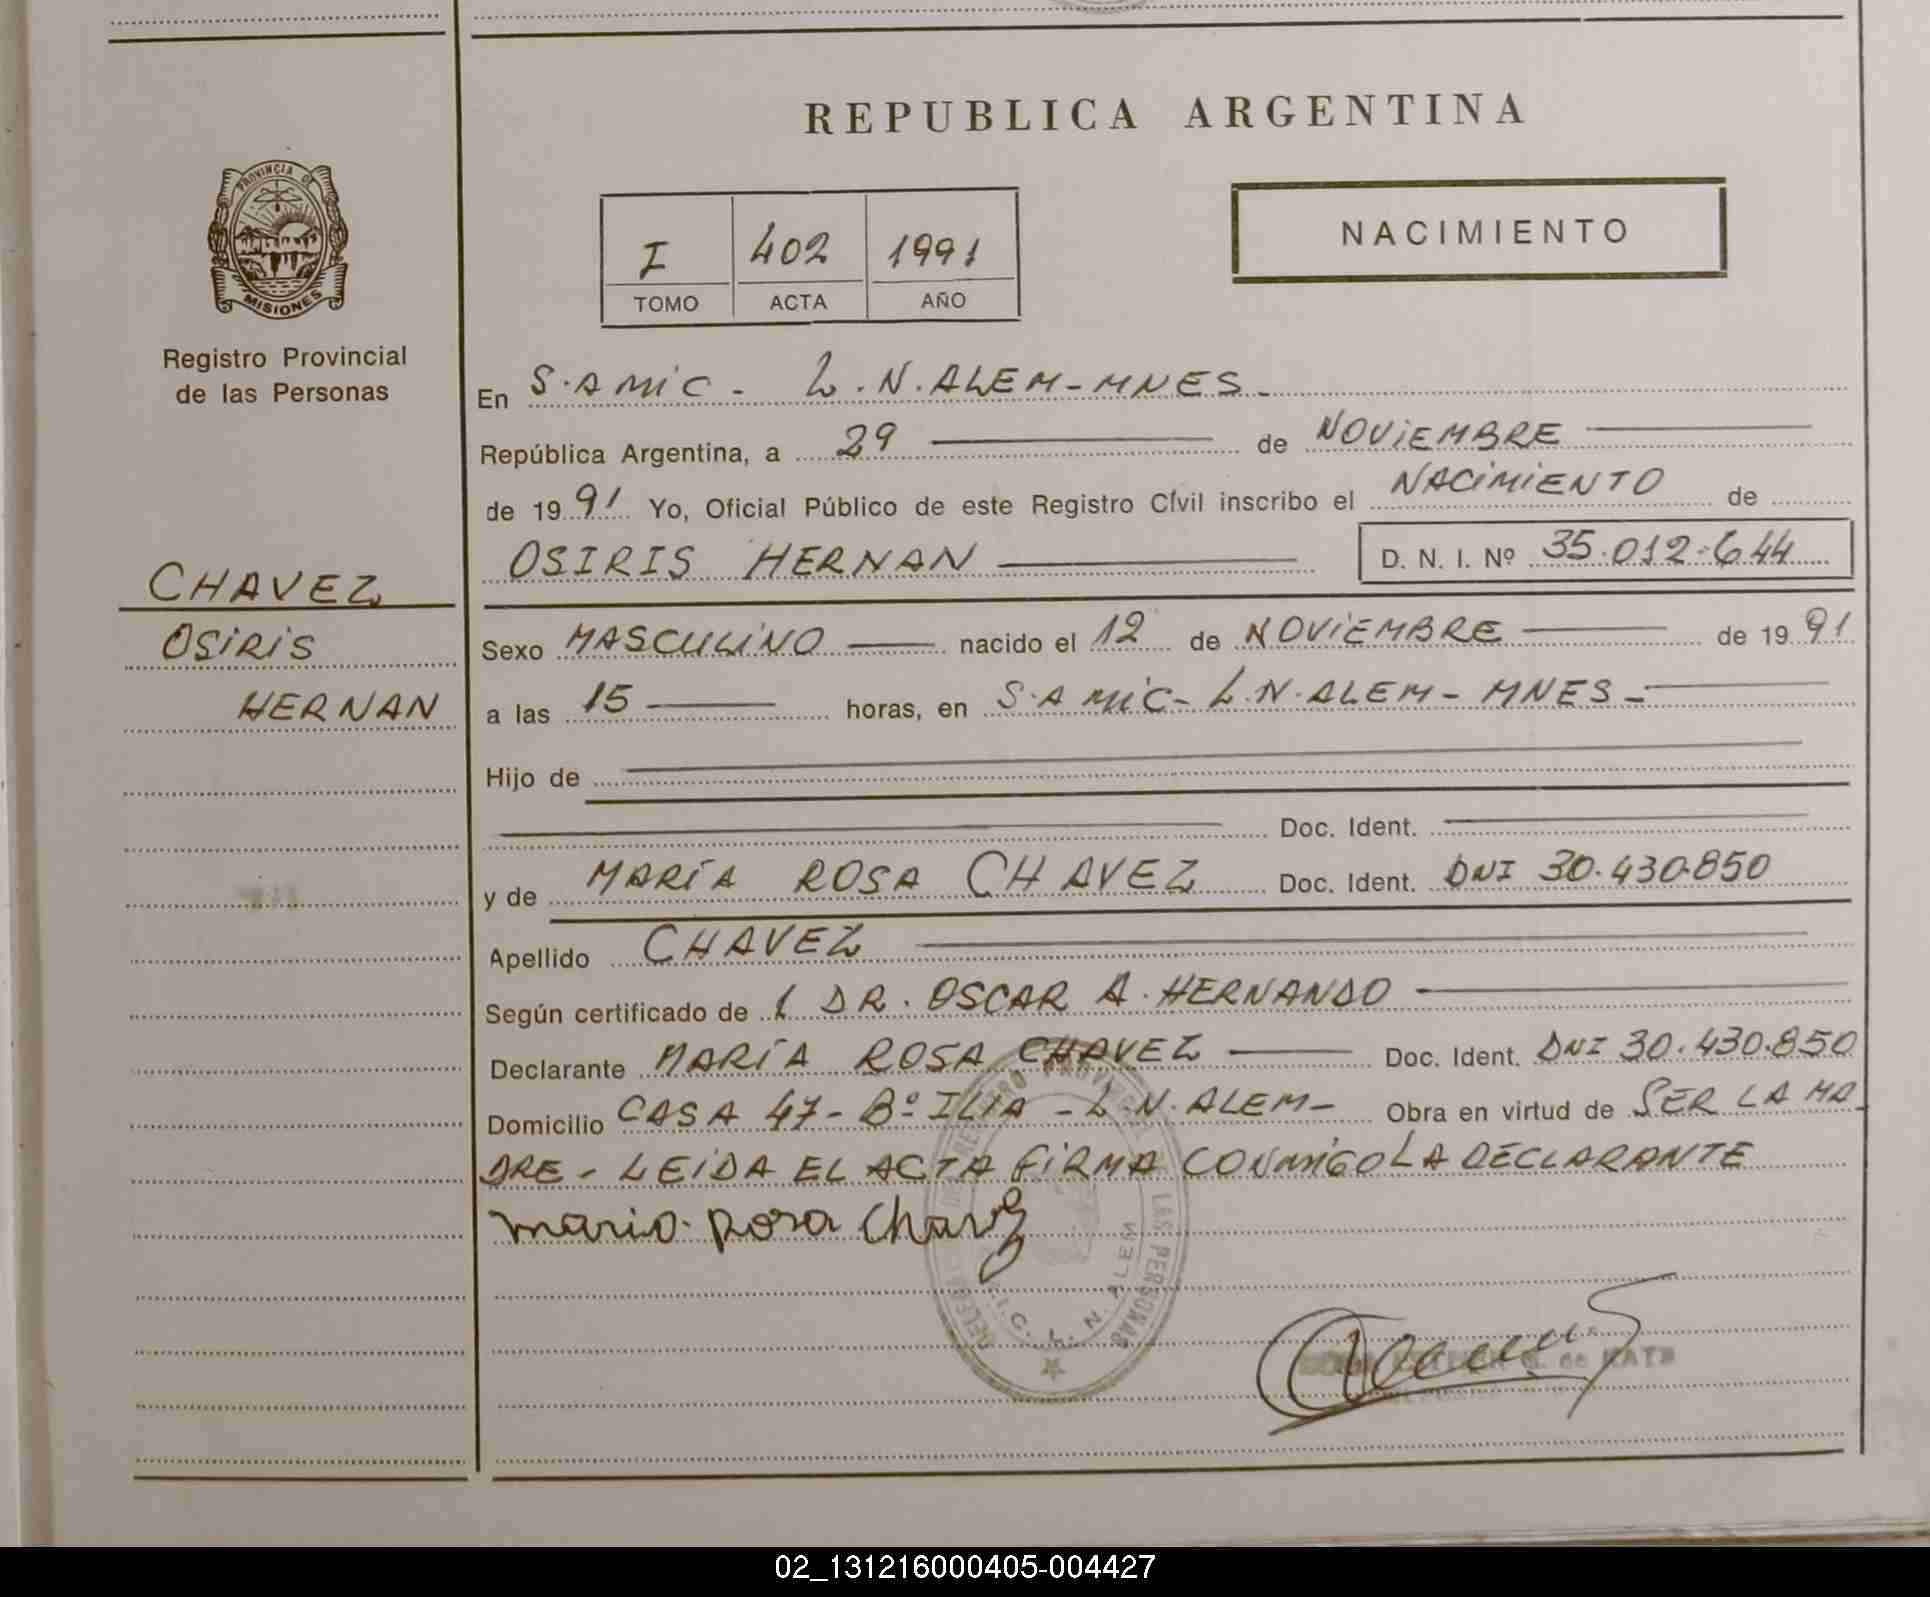 REPUBLICA ARGENTINA
PROVINCIA DE
MISIONES
Registro Provincial
de las Personas
I 402 1991
TOMO ACTA AÑO
NACIMIENTO
CHAVEZ
OSIRIS
HERNAN
En S.AMIC - L.N.ALEM-MNES-
República Argentina, a 29 de NOVIEMBRE
de 1991 Yo, Oficial Público de este Registro Cívil inscribo el NACIMIENTO de
OSIRIS HERNAN D. N. I. Nº 35.012.644
Sexo MASCULINO nacido el 12 de NOVIEMBRE de 1991
a las 15 horas, en S.AMIC- L.N.ALEM- MNES-
Hijo de
Doc. Ident.
y de MARÍA ROSA CHAVEZ Doc. Ident. DNI 30.430.850
Apellido CHAVEZ
Según certificado de DR. OSCAR A. HERNANDO
Declarante MARÍA ROSA CHAVEZ Doc. Ident. DNI 30.430.850
Domicilio CASA 47- Bº ILIA - L.N.ALEM- Obra en virtud de SER LA MA
DRE- LEIDA EL ACTA FIRMA CONMIGO LA DECLARANTE
maria rosa Chavez
LAS PERSONAS
L. N. ALEM
02_131216000405-004427